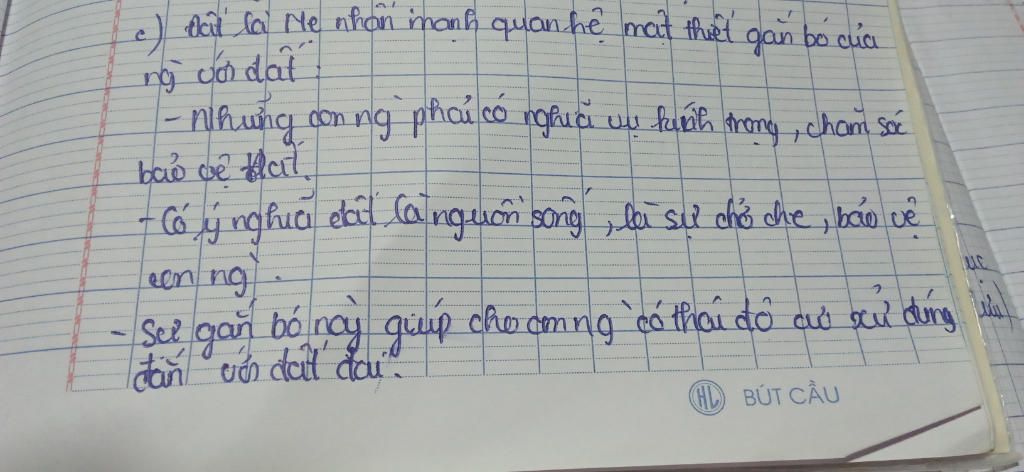 c) Đất là Mẹ nhấn mạnh quan hệ mật thiết gắn bó của
ng với đất :
- Những con ng phải có nghĩa vụ kính trọng, chăm sóc
bảo vệ đất.
- Có ý nghĩa đất là nguồn sống, là sự chở che, bảo vệ
con ng.
- Sự gắn bó này giúp cho con ng có thái độ cư xử đúng
đắn với đất đai.
HL BÚT CẦU